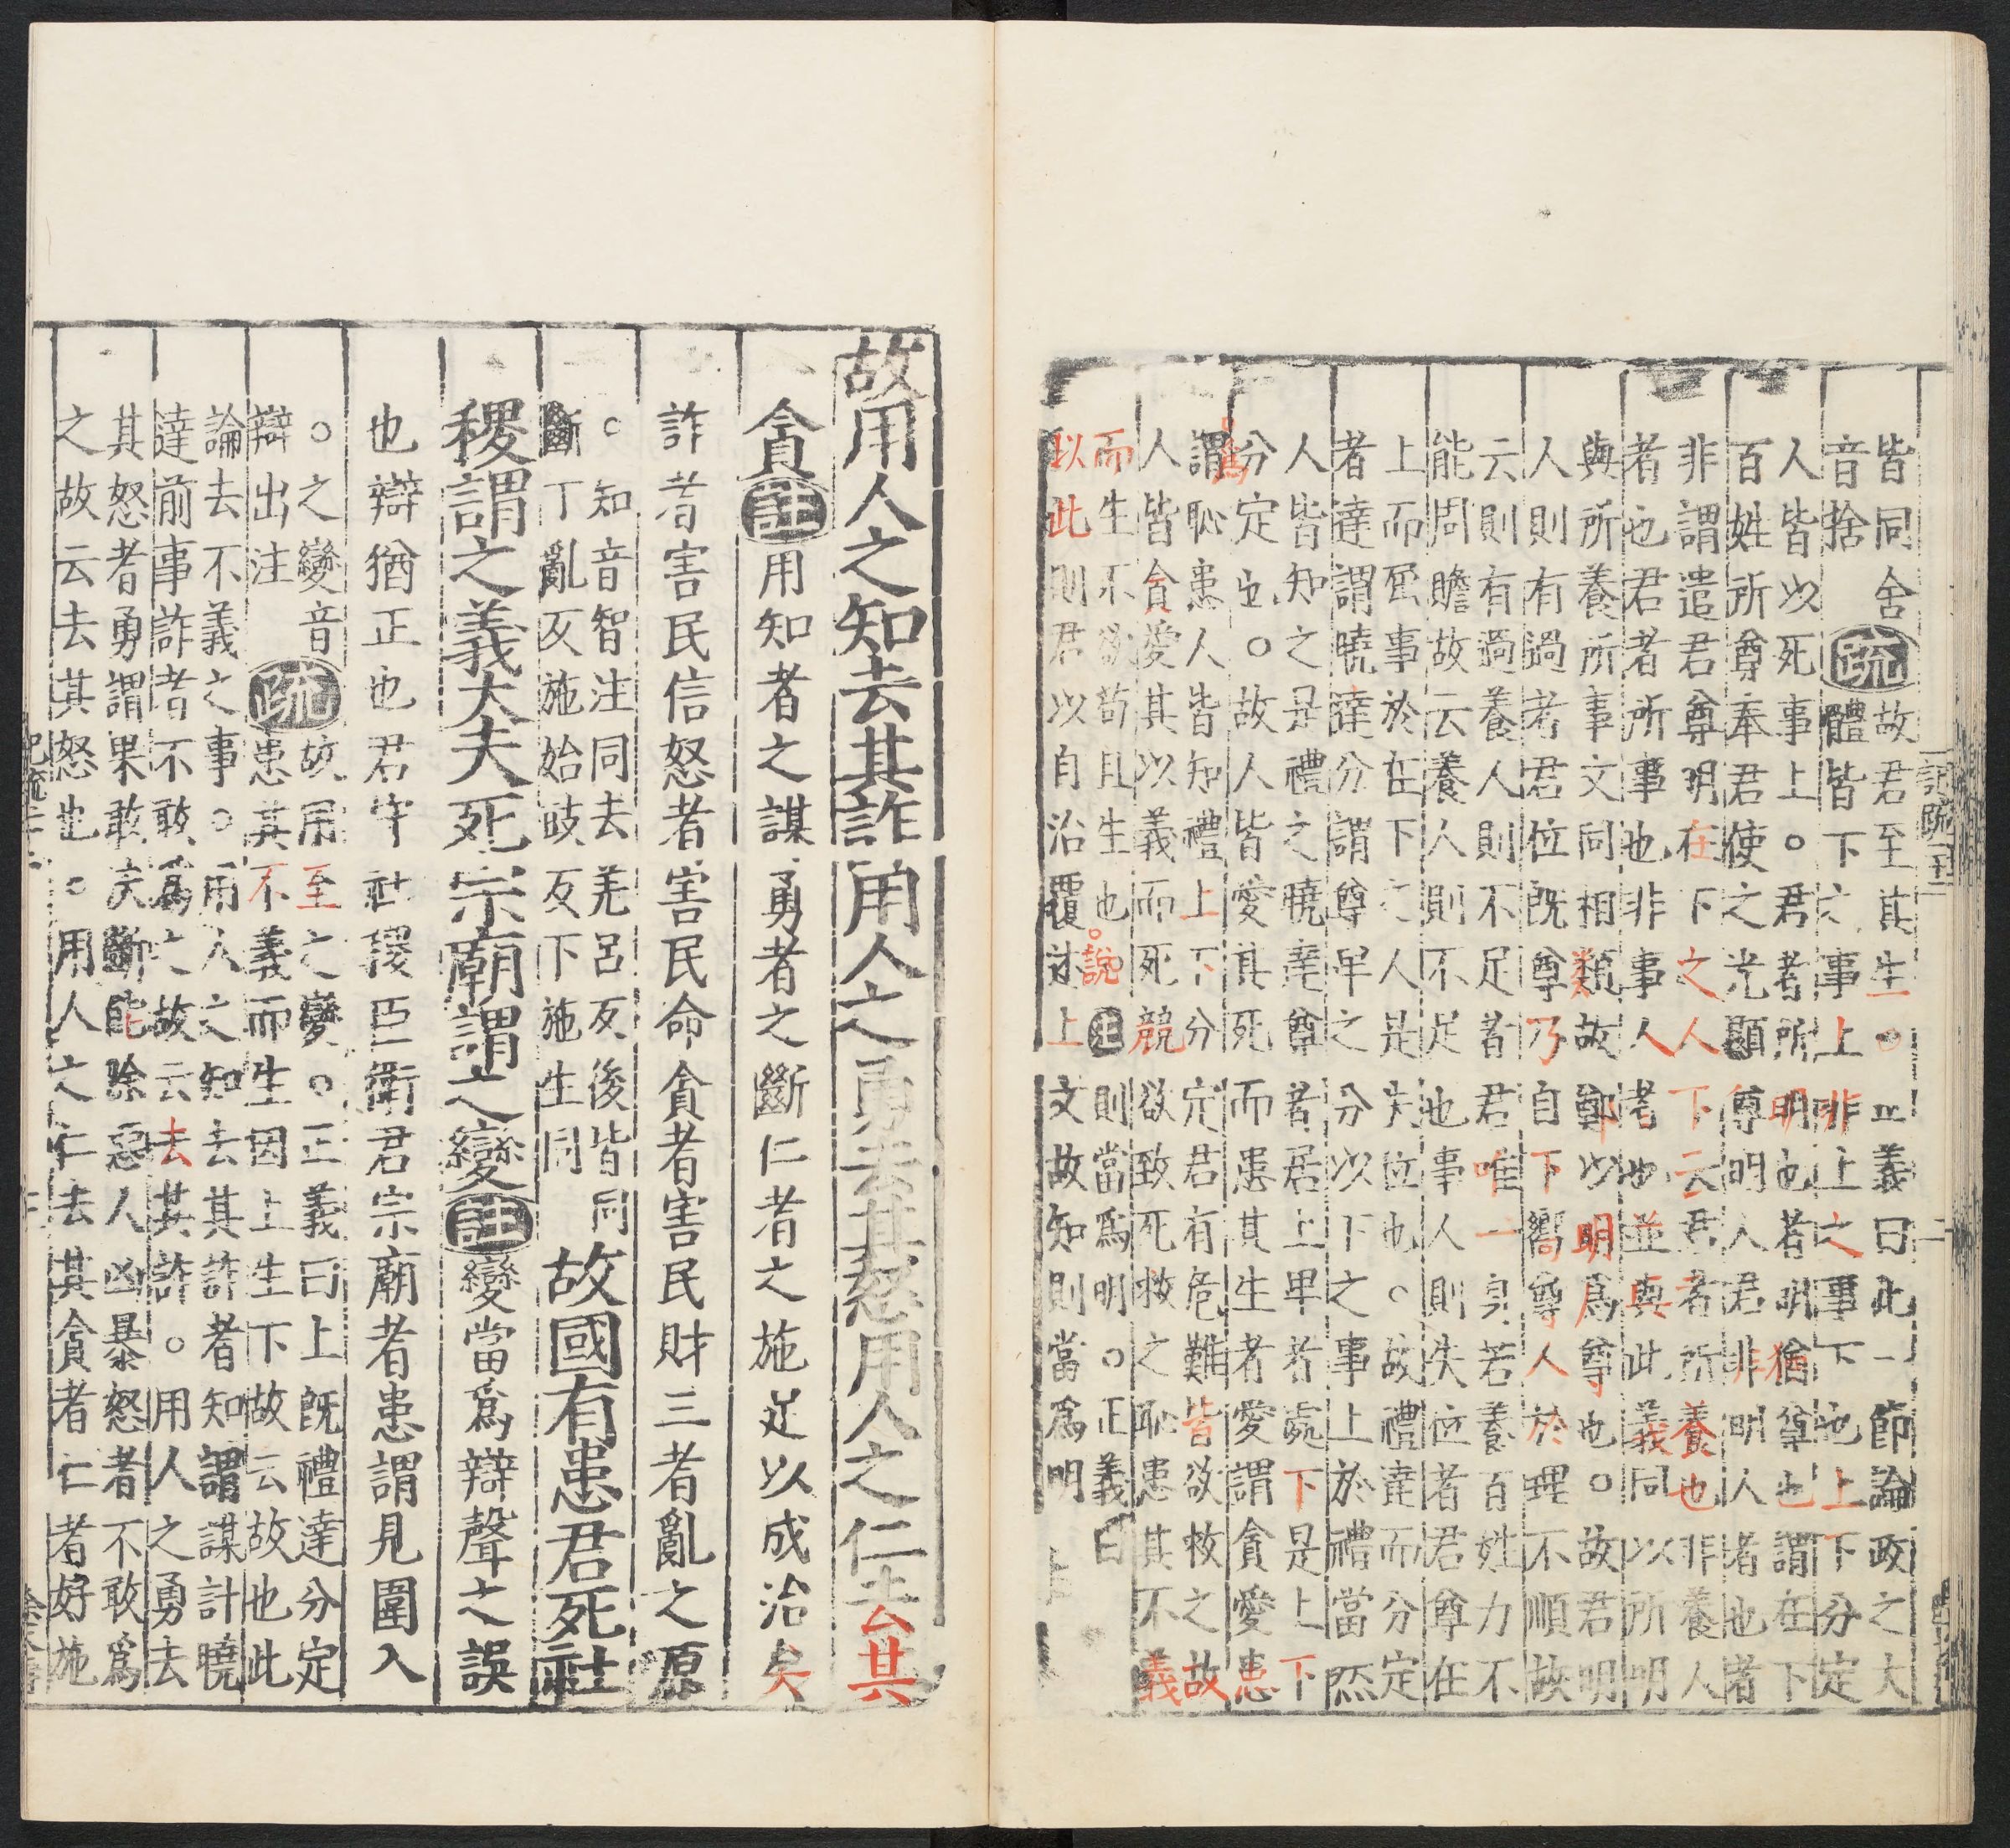 皆同舍
音捨
疏
故君至其生一。正義曰此一節論政之大
體皆下之事上非上之事下也上下分定
人皆以死事上。君者所明也者明猶尊也謂在下
百姓所尊奉君使之光顯尊明人君非明人者也者
非謂遣君尊明在下之人下云君者所養也非養人
者也君者所事也非事人者也並與此義同以所明
與所養所事文同相類故鄭以明爲尊也。故君明
人則有過者君位既尊乃自下嚮尊人於理不順故
云則有過養人則不足者君唯一身若養百姓力不
能周贍故云養人則不足也事人則失位者君尊在
上而屈事於在下之人是失位也。故禮達而分定
者達謂曉達分謂尊卑之分以下之事上於禮當然
人皆知之是禮之曉達尊者居上卑者處下是上下
分定也。故人皆愛其死而患其生者愛謂貪愛患
爲
謂恥患人皆知禮上下分定君有危難皆欲救之故
人皆貪愛其以義而死競欲致死救之恥患其不義
而生不欲苟且生也。說註則當爲明。正義曰
以此則君以自治覆述上文故知則當爲明
記疏二十二
故用人之知去其詐用人之勇去其怒用人之仁去其
貪註用知者之謀勇者之斷仁者之施足以成治矣
詐者害民信怒者害民命貪者害民財三者亂之源
。知音智注同去羌呂反後皆同
斷丁亂反施始豉反下施生同
故國有患君死社
稷謂之義大夫死宗廟謂之變註變當爲辯聲之誤
也辯猶正也君守社稷臣衛君宗廟者患謂見圍入
。之變音
辯出注
疏
故用至之變。正義曰上既禮達分定
患其不義而生因上生下故云故也此
論去不義之事。用人之知去其詐者知謂謀計曉
達前事詐者不敢爲之故云去其詐。用人之勇去
其怒者勇謂果敢決斷能除惡人凶暴怒者不敢爲
之故云去其怒也。用人之仁去其貪者仁者好施